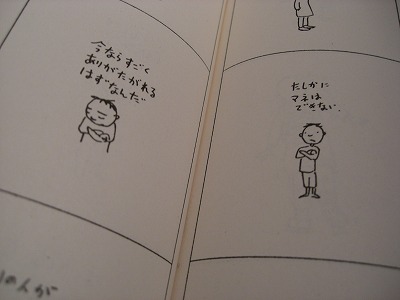 今ならすごく
ありがたがれる
はずなんだ
たしかに
マネは
できない.